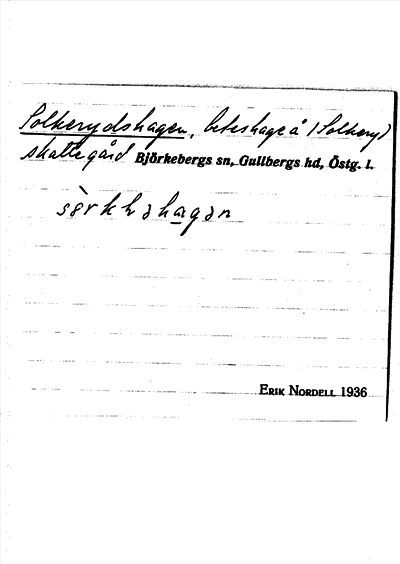 Solkerydshagen, beteshage å (Solkeryd)
skattegård Björkebergs sn, Gullbergs hd, Östg. l.
ERIK NORDELL 1936